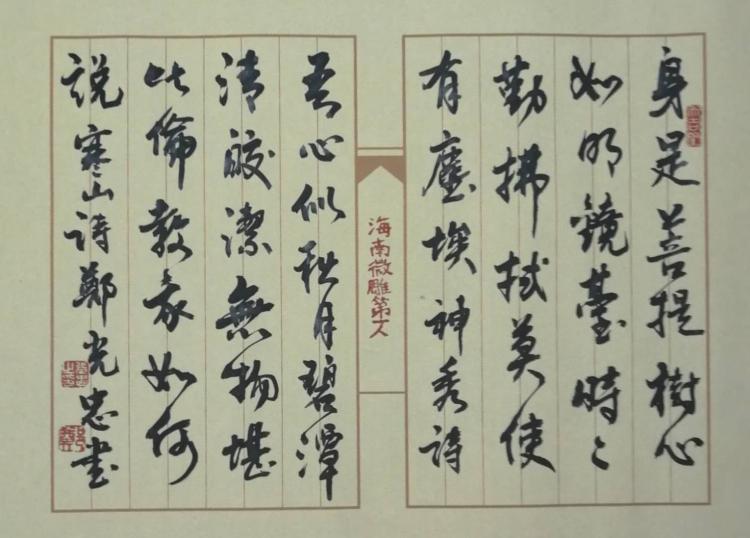 身是菩提樹心
如明鏡臺時〻
勤拂拭莫使
有塵埃神秀詩
海南微雕第一人
吾心似秋月碧潭
清皎潔無物堪
比倫教我如何
說寒山詩鄭光忠书